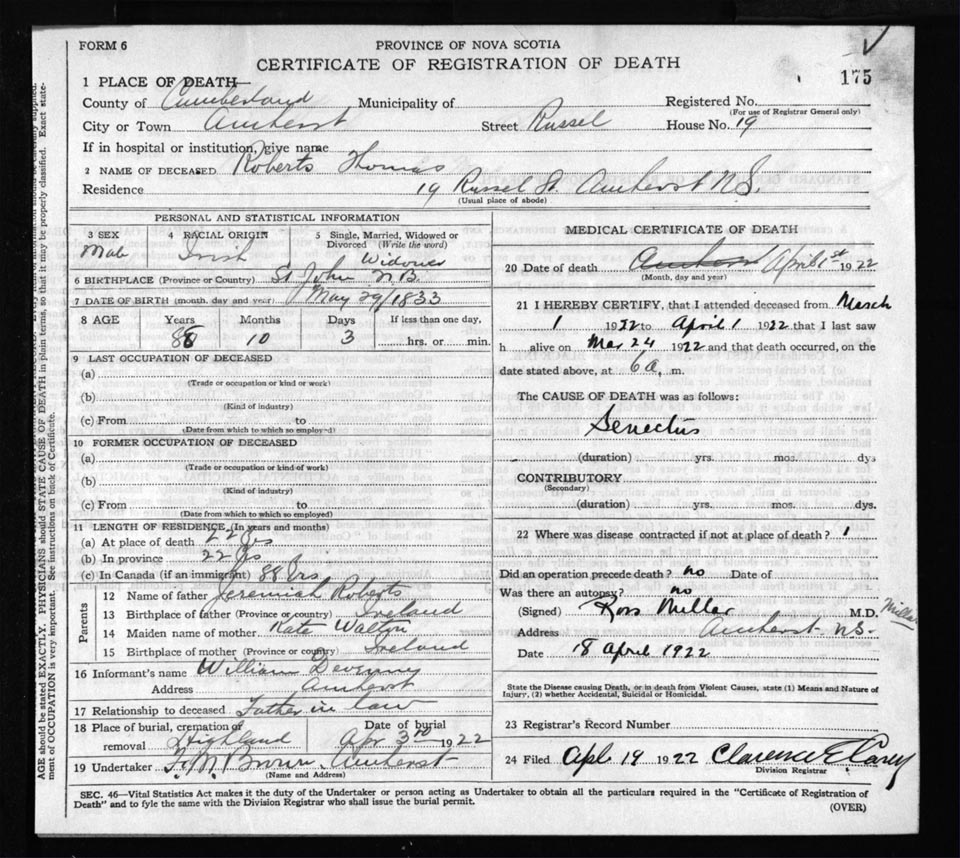 FORM 6
PROVINCE OF NOVA SCOTIA
CERTIFICATE OF REGISTRATION OF DEATH
175
1 PLACE OF DEATH
County of Cumberland Municipality of Registered No.
(For use of Registrar General only)
City or Town Amherst Street Russel House No. 19
If in hospital or institution, give name
2 NAME OF DECEASED Roberts Thomas
Residence 19 Russel St. Amherst N.S.
(Usual place of abode)
PERSONAL AND STATISTICAL INFORMATION
3 SEX 4 RACIAL ORIGIN 5 Single, Married, Widowed or Divorced (Write the word)
Male Irish Widower
6 BIRTHPLACE (Province or Country) St John N B
7 DATE OF BIRTH (month, day and year) May 29/1833
8 AGE Years Months Days If less than one day,
88 10 3 hrs. or min.
9 LAST OCCUPATION OF DECEASED
(a)
(Trade or occupation or kind or work)
(b)
(Kind of industry)
(c) From to
(Date from which to which so employed)
10 FORMER OCCUPATION OF DECEASED
(a)
(Trade or occupation or kind of work)
(b)
(Kind of industry)
(c) From to
(Date from which to which so employed)
11 LENGTH OF RESIDENCE (In years and months)
(a) At place of death 22 yrs
(b) In province 22 yrs
(c) In Canada (if an immigrant) 88 yrs
Parents
12 Name of father Jeremiah Roberts
13 Birthplace of father (Province or country) Ireland
14 Maiden name of mother Kate Walton
15 Birthplace of mother (Province or country) Ireland
16 Informant's name William Devenny
Address Amherst
17 Relationship to deceased Father in law
18 Place of burial, cremation or removal Highland Date of burial Apr 3rd 1922
19 Undertaker F. M. Brown Amherst
(Name and Address)
MEDICAL CERTIFICATE OF DEATH
20 Date of death Amherst April 1st 1922
(Month, day and year)
21 I HEREBY CERTIFY, that I attended deceased from March
1 1922 to April 1 1922 that I last saw
h alive on Mar 24 1922 and that death occurred, on the
date stated above, at 6 a. m.
The CAUSE OF DEATH was as follows:
Senectus
(duration) yrs. mos. dys
CONTRIBUTORY
(Secondary)
(duration) yrs. mos. dys.
22 Where was disease contracted if not at place of death?
Did an operation precede death? no Date of
Was there an autopsy? no
(Signed) Ross Millar M.D. Millar
Address Amherst N.S.
Date 18 April 1922
State the Disease causing Death, or in death from Violent Causes, state (1) Means and Nature of
Injury, (2) whether Accidental, Suicidal or Homicidal.
23 Registrar's Record Number
24 Filed Apl. 19 1922 Clarence E Casey
Division Registrar
SEC. 46—Vital Statistics Act makes it the duty of the Undertaker or person acting as Undertaker to obtain all the particulars required in the "Certificate of Registration of
Death" and to fyle the same with the Division Registrar who shall issue the burial permit.
(OVER)
AGE should be stated EXACTLY. PHYSICIANS should STATE CAUSE OF DEATH in plain terms, so that it may be properly classified. Exact state-
ment of OCCUPATION is very important. See instructions on back of Certificate.